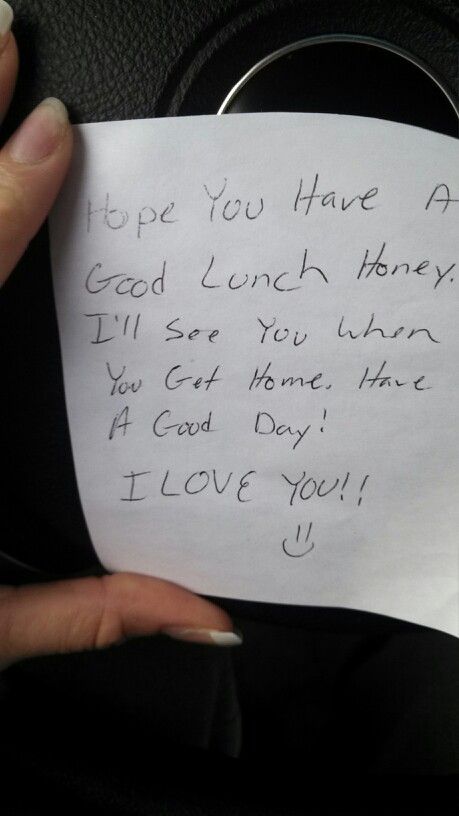 Hope You Have A
Good Lunch Honey.
I'll See You When
You Get Home. Have
A Good Day!
I LOVE YOU!!